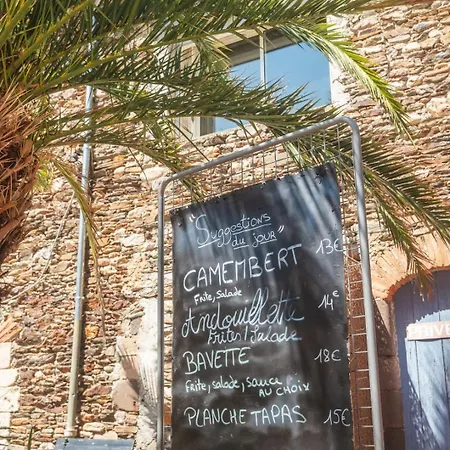 "Suggestions
du jour"
CAMEMBERT 13€
Frite, Salade
Andouillette 14€
Frites / Salade
BAVETTE 18€
Frite, salade, sauce
AU CHOIX
PLANCHE TAPAS 15€
PRIVÉ